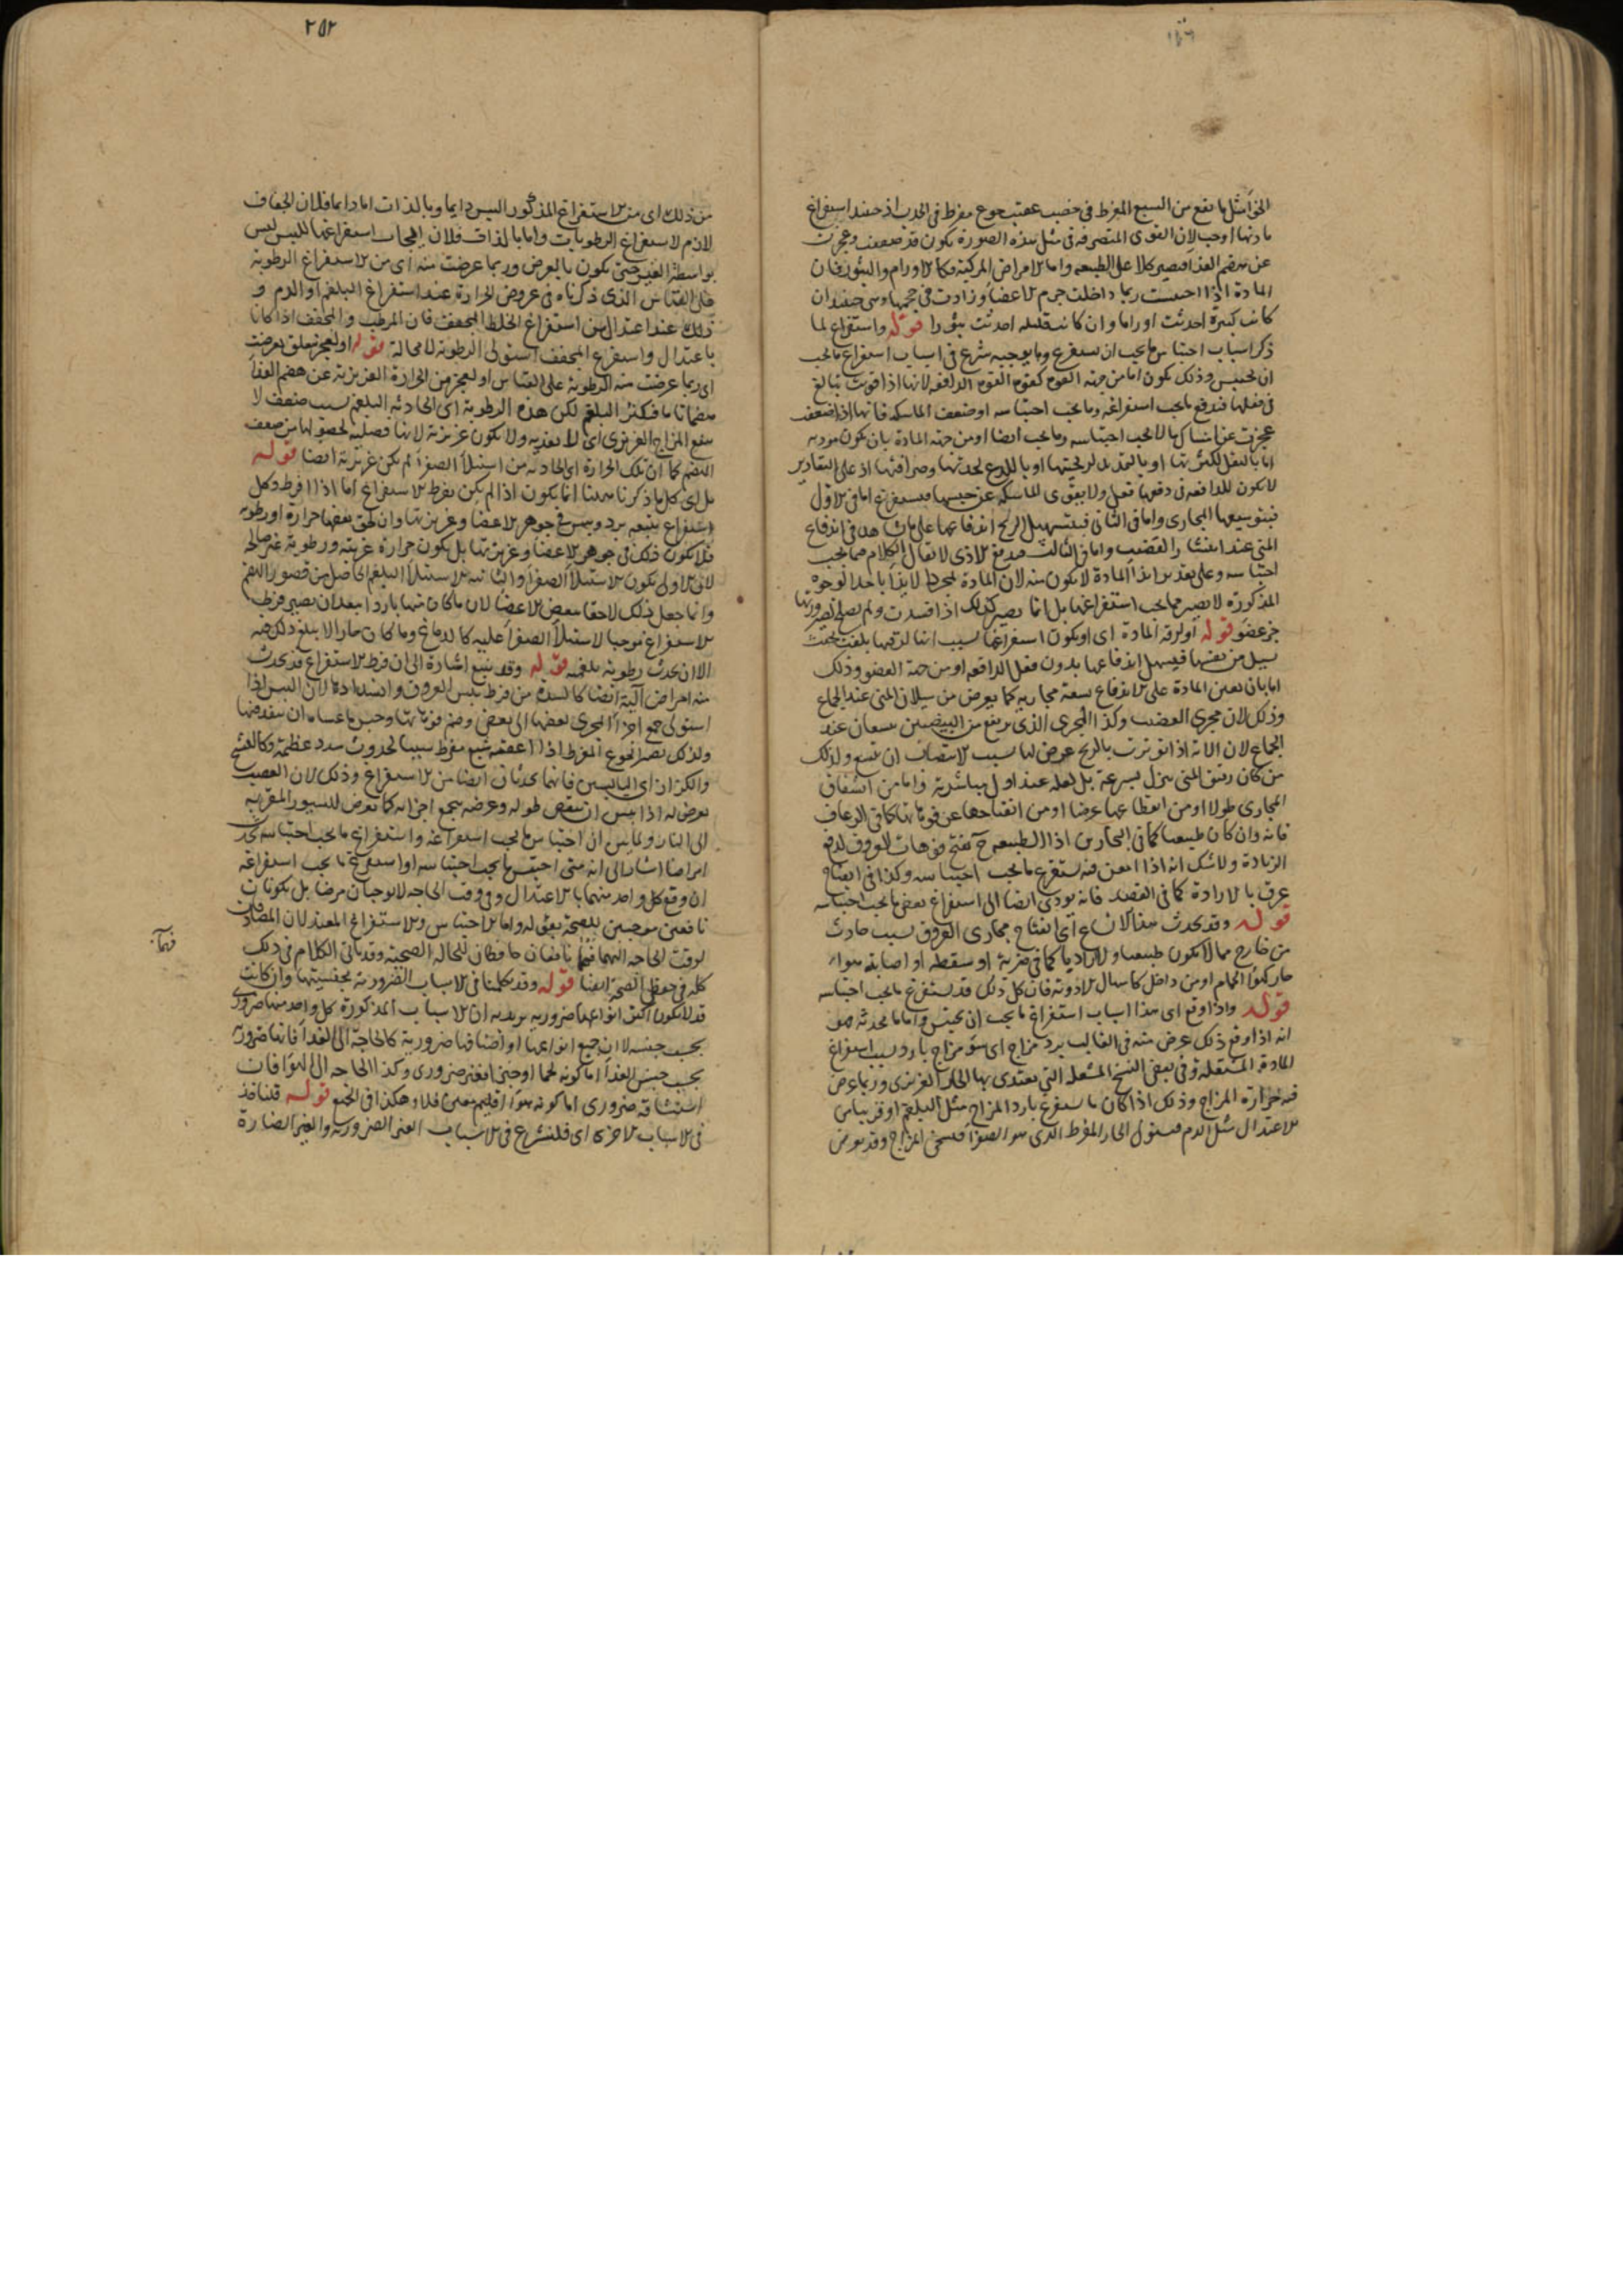 الخوا مثل ما يقع من الشبع المفرط في خصب عقيب جوع مفرط في الجدب اذ حينئذ استفراغ
مادتها اوجب لان القوى المتصرفة في مثل هذه الصورة يكون قد ضعفت وعجزت
عن هضم الغذا فيصير كلا على الطبيعة واما الامراض المركبة فكالاورام والبثور فان
المادة اذا احتبست ربما داخلت جرم الاعضا وزادت في حجمها وهي حينئذ ان
كانت كثيرة احدثت اوراما وان كانت قليلة احدثت بثورا قوله واستفراغ لما
ذكر اسباب احتباس ما يجب ان يستفرغ وما يوجبه شرع في اسباب استفراغ ما يجب
ان يحتبس وذلك يكون اما من جهة القوة كقوة القوة الدافعة لانها اذا قويت تبالغ
في فعلها فتدفع ما يجب استفراغه وما يجب احتباسه او ضعف الماسكة فانها اذا ضعفت
عجزت عن امساك ما لا يجب احتباسه وما يجب ايضا او من جهة المادة بان يكون موذية
اما بالثقل لكثرتها او بالتمديد لريحيتها او باللذع لحدتها وحرافتها اذ على التقادير
لا يكون للدافعة في دفعها فعل ولا يقوى الماسكة عن حبسها فيستفرغ اما في الاول
فبتوسيعها المجاري واما في الثاني فبتسهيل الريح اندفاعها على ما يشاهد في اندفاع
المني عند انتشار القضيب واما في الثالث فبدفع الاذى لا يقال الكلام فيما يجب
احتباسه وعلى تقدير ايذا المادة لا يكون منه لان المادة بمجرد الايذا باحد الوجوه
المذكورة لا يصير مما يجب استفراغها بل انما يصير كذلك اذا فسدت ولم يصلح لصيرورتها
جزء عضو قوله او لرقة المادة اى او يكون استفراغها لسبب انها لرقتها بلغت بحيث
يسيل من نفسها فيسهل اندفاعها بدون فعل الدافعة او من جهة العضو وذلك
اما بان يعين المادة على الاندفاع سعة مجاريه كما يعرض من سيلان المني عند الجماع
وذلك لان مجرى القضيب وكذا المجرى الذى يرتفع من البيضتين يتسعان عند
الجماع لان الالة اذا توترت بالريح عرض لها بسبب الانتصاب ان تتسع ولذلك
من كان رقيق المني ينزل بسرعة بل لعله عند اول مباشرته واما من انشقاق
المجاري طولا او من انقطاعها عرضا او من انفتاحها عن فوهاتها كما في الرعاف
فانه وان كان طبيعيا كما في البحارين اذا الطبيعة ح تفتح فوهات العروق لدفع
الزيادة ولا شك انه اذا امعن فيه يستفرغ ما يجب احتباسه وكذا في انفتاح
عرق بالارادة كما في الفصد فانه يودى ايضا الى استفراغ بعض ما يجب احتباسه
قوله وقد يحدث هذا الاتساع اى انفتاح مجارى العروق بسبب حادث
من خارج مما لا يكون طبيعيا ولا اراديا كما في ضربة او سقطة او اصابة هواء
حار كهوا الحمام او من داخل كاسهال الادوية فان كل ذلك قد يستفرغ ما يجب احتباسه
قوله واذا وقع اى هذا اسباب استفراغ ما يجب ان يحتبس واما ما يحدثه فهو
انه اذا وقع ذلك عرض منه في الغالب برد مزاج اى سو مزاج بارد بسبب استفراغ
المادة المشتعلة وفي بعض النسخ المشعلة التي يغتذى بها الحار الغريزى وربما عرض
فيه حرارة المزاج وذلك اذا كان ما يستفرغ بارد المزاج مثل البلغم او قريبا من
الاعتدال مثل الدم فيستولى الحار المفرط الذى هو الصفرا فيسخن المزاج وقد يعرض
٢٥٢
من ذلك اى من الاستفراغ المذكور اليبس دايما وبالذات اما دايما فلان الجفاف
لازم لاستفراغ الرطوبات واما بالذات فلان ايجاب استفراغها لليبس ليس
بواسطة الغير حتى يكون بالعرض وربما عرضت منه اى من الاستفراغ الرطوبة
على القياس الذى ذكرناه في عروض الحرارة عند استفراغ البلغم او الدم و
ذلك عند اعتدال من استفراغ الخلط المجفف فان المرطب والمجفف اذا كانا
باعتدال واستفرغ المجفف استولى الرطوبة لا محالة قوله او لعجز تعلق بعرضت
اى ربما عرضت منه الرطوبة على القياس او لعجز من الحرارة الغريزية عن هضم الغذا
هضما تاما فيكثر البلغم لكن هذه الرطوبة اى الحادثة البلغم بسبب ضعف لا
ينفع المزاج الغريزى اى لا يغذيه ولا يكون غريزية لانها فضلية لحصولها من ضعف
الهضم كما ان تلك الحرارة اى الحادثة من استيلا الصفرا لم يكن غريزية ايضا قوله
بل اى كل ما ذكرنا ههنا انما يكون اذا لم يكن يفرط الاستفراغ اما اذا افرط وكل
استفراغ يتبعه برد ويبس في جوهر الاعضا وغريزتها وان لحق بعضها حرارة او رطوبة
فلا يكون ذلك في جوهر الاعضا وغريزتها بل يكون حرارة غريبة ورطوبة غير صالحة
لان الاولى يكون لاستيلا الصفرا والثانية لاستيلا البلغم الحاصل من قصور الهضم
وانما جعل ذلك لاحقا ببعض الاعضا لان ما كان منها باردا بعد ان يصير فرط
الاستفراغ موجبا لاستيلا الصفرا عليه كالدماغ وما كان حارا لا يبلغ ذلك فيه
الا ان يحدث رطوبة بلغمية قوله وقد يتبع اشارة الى ان فرط الاستفراغ قد يحدث
منه امراض آلية ايضا كالسدة من فرط يبس العروق وانسدادها لان اليبس اذا
استولى جمع اجزا المجرى بعضها الى بعض وضم فوهاتها وحبس ما عساه ان ينفذ فيها
ولذلك يصير الجوع المفرط اذا اعقبه شبع مفرط سببا لحدوث سدد عظيمة وكالتشنج
والكزاز اى اليابسين فانهما يحدثان ايضا من الاستفراغ وذلك لان العصب
يعرض له اذا يبس ان ينقص طوله وعرضه بجمع اجزائه كما يعرض للسيور المقربة
الى النار ولما بين ان احتباس ما يجب استفراغه واستفراغ ما يجب احتباسه يحدث
امراضا اشار الى انه متى احتبس ما يجب احتباسه او استفرغ ما يجب استفراغه
ان وقع كل واحد منهما بالاعتدال وفي وقت الحاجة لا يوجبان مرضا بل يكونان
نافعين موجبين للصحة بقوله واما الاحتباس والاستفراغ المعتدلان المصادفان
لوقت الحاجة اليهما فهما نافعان حافظان للحالة الصحية وقد ياتي الكلام في ذلك
كله في حفظ الصحة ايضا قوله وقد تكلمنا في الاسباب الضرورية بجنسيتها وان كانت
قد لا يكون اكثر انواعها ضرورية يريد به ان الاسباب المذكورة كل واحد منها ضرورى
بحسب جنسه لا ان جميع انواعها او اصنافها ضرورية كالحاجة الى الغذا فانها ضرورة
بحسب جنس الغذا اما كونه لحما او خبزا فغير ضرورى وكذا الحاجة الى الهوا فان
استنشاقه ضرورى اما كونه هوا اقليم معين فلا وهكذا في الجميع قوله فلنأخذ
في الاسباب الاخرى اى فلنشرع في الاسباب الغير الضرورية والغير الضارة